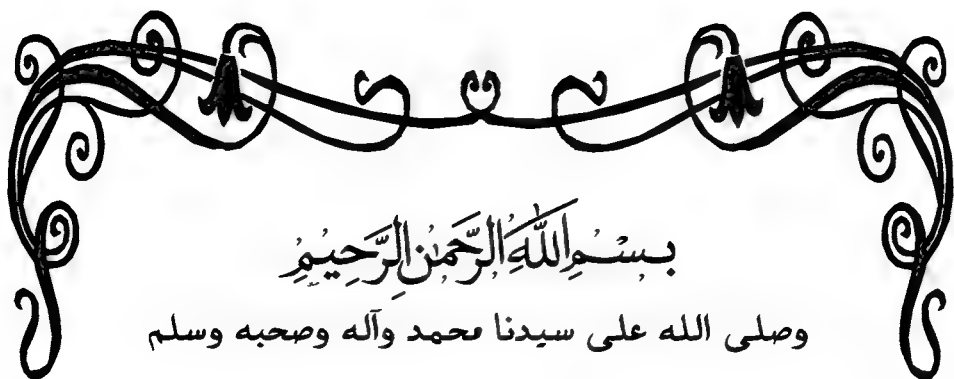 بسم الله الرحمن الرحيم
وصلى الله على سيدنا محمد وآله وصحبه وسلم